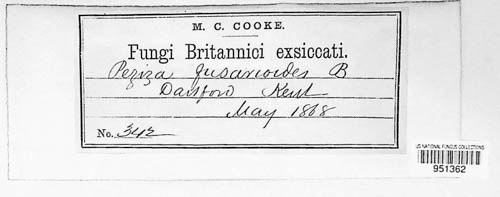 M. C. COOKE.
Fungi Britannici exsiccati.
Peziza fusarioides B
Dartford Kent
May 1868
No. 342
US NATIONAL FUNGUS COLLECTIONS
951362